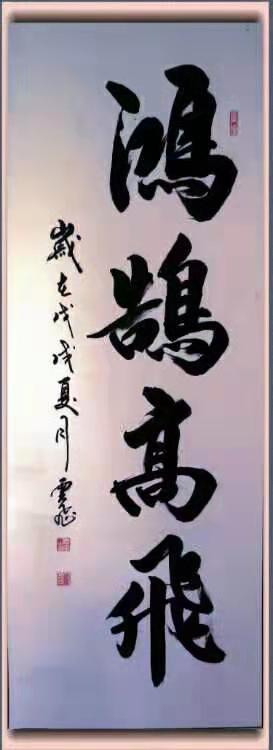 鴻鵠高飛
歲在戊戌夏月